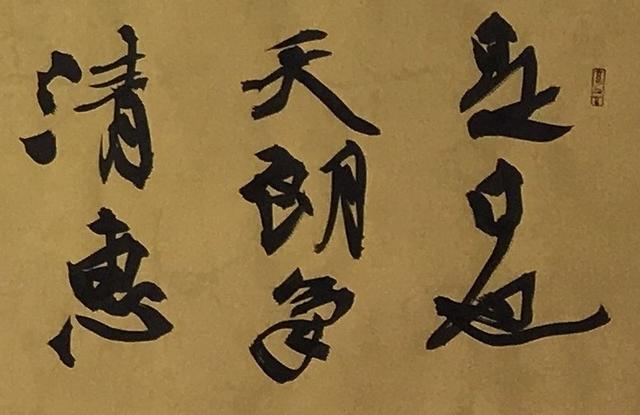 是日也
天朗氣
清惠